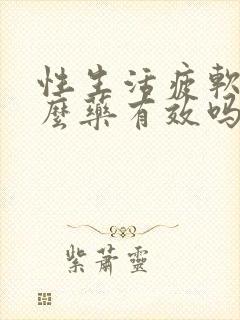 性生活疲軟
麼藥有效吗
紫蕭靈